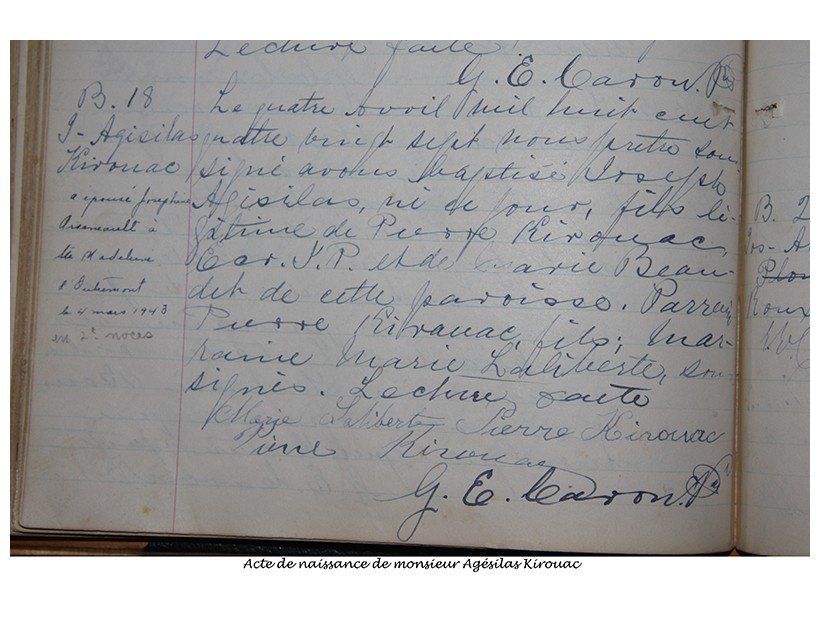 Lecture faite
G. E. Caron. Ptre
B. 18
J-Agisilas
Kirouac
a épousé Josephine
Arseneault à
Ste Madeleine
d'Outremont
le 4 mars 1943
en 2es noces
Le quatre Avril mil huit cent
quatre vingt sept nous pretre sous-
signé avons baptisé Joseph
Agisilas, né ce jour, fils lé-
gitime de Pierre Kirouac,
Car. J. P. et de Marie Beau-
det de cette paroisse. Parrain
Pierre Kirouac, fils; Mar-
raine Marie Laliberte, sous-
signés. Lecture faite
Marie Laliberte Pierre Kirouac
Pierre Kirouac
G. E. Caron. Ptre
B. 2
Jos- A
Roux
Acte de naissance de monsieur Agésilas Kirouac